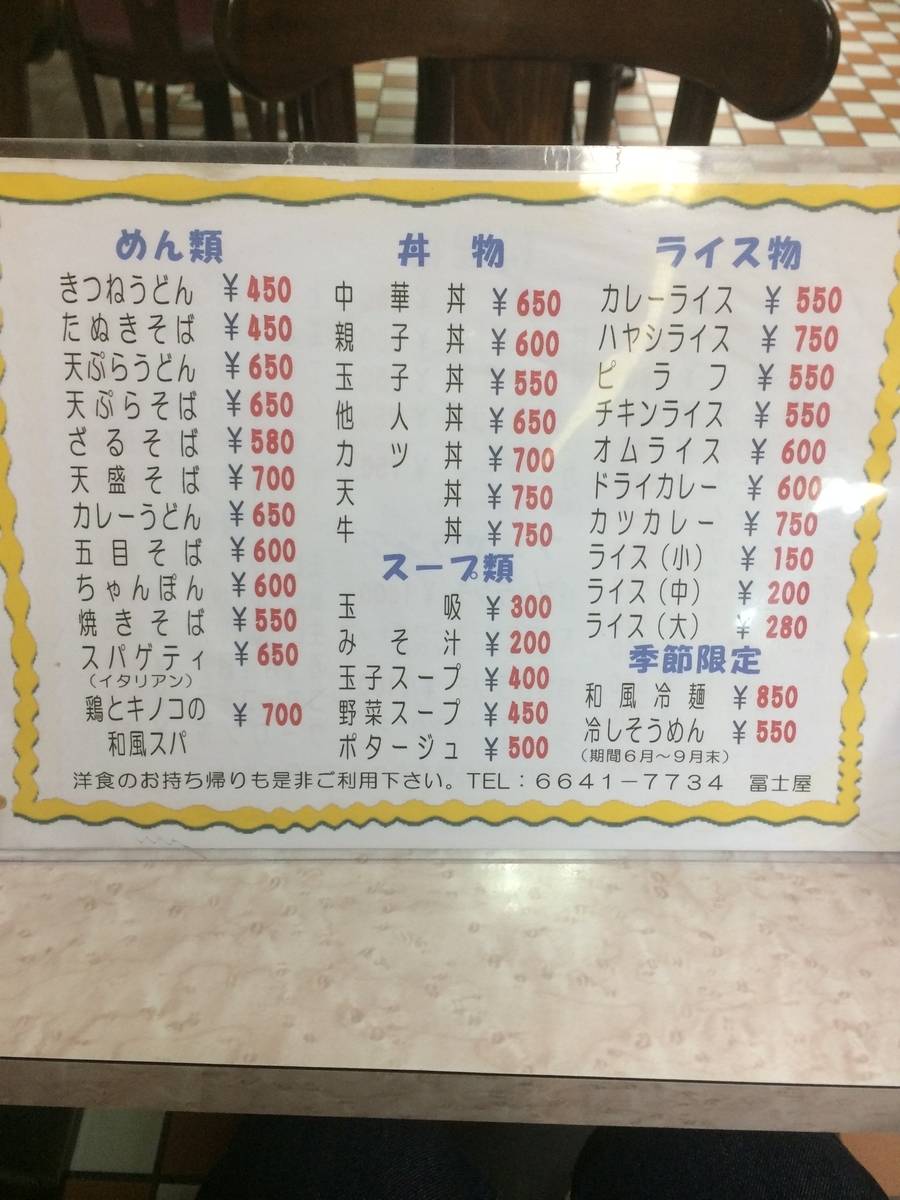 めん類
きつねうどん ¥450
たぬきそば ¥450
天ぷらうどん ¥650
天ぷらそば ¥650
ざるそば ¥580
天盛そば ¥700
カレーうどん ¥650
五目そば ¥600
ちゃんぽん ¥600
焼きそば ¥550
スパゲティ ¥650
(イタリアン)
鶏とキノコの ¥700
和風スパ
丼物
中華丼 ¥650
親子丼 ¥600
玉子丼 ¥550
他人丼 ¥650
カツ丼 ¥700
天丼 ¥750
牛丼 ¥750
スープ類
玉吸 ¥300
みそ汁 ¥200
玉子スープ ¥400
野菜スープ ¥450
ポタージュ ¥500
ライス物
カレーライス ¥550
ハヤシライス ¥750
ピラフ ¥550
チキンライス ¥550
オムライス ¥600
ドライカレー ¥600
カツカレー ¥750
ライス(小) ¥150
ライス(中) ¥200
ライス(大) ¥280
季節限定
和風冷麺 ¥850
冷しそうめん ¥550
(期間6月〜9月末)
洋食のお持ち帰りも是非ご利用下さい。TEL：6641－7734 冨士屋